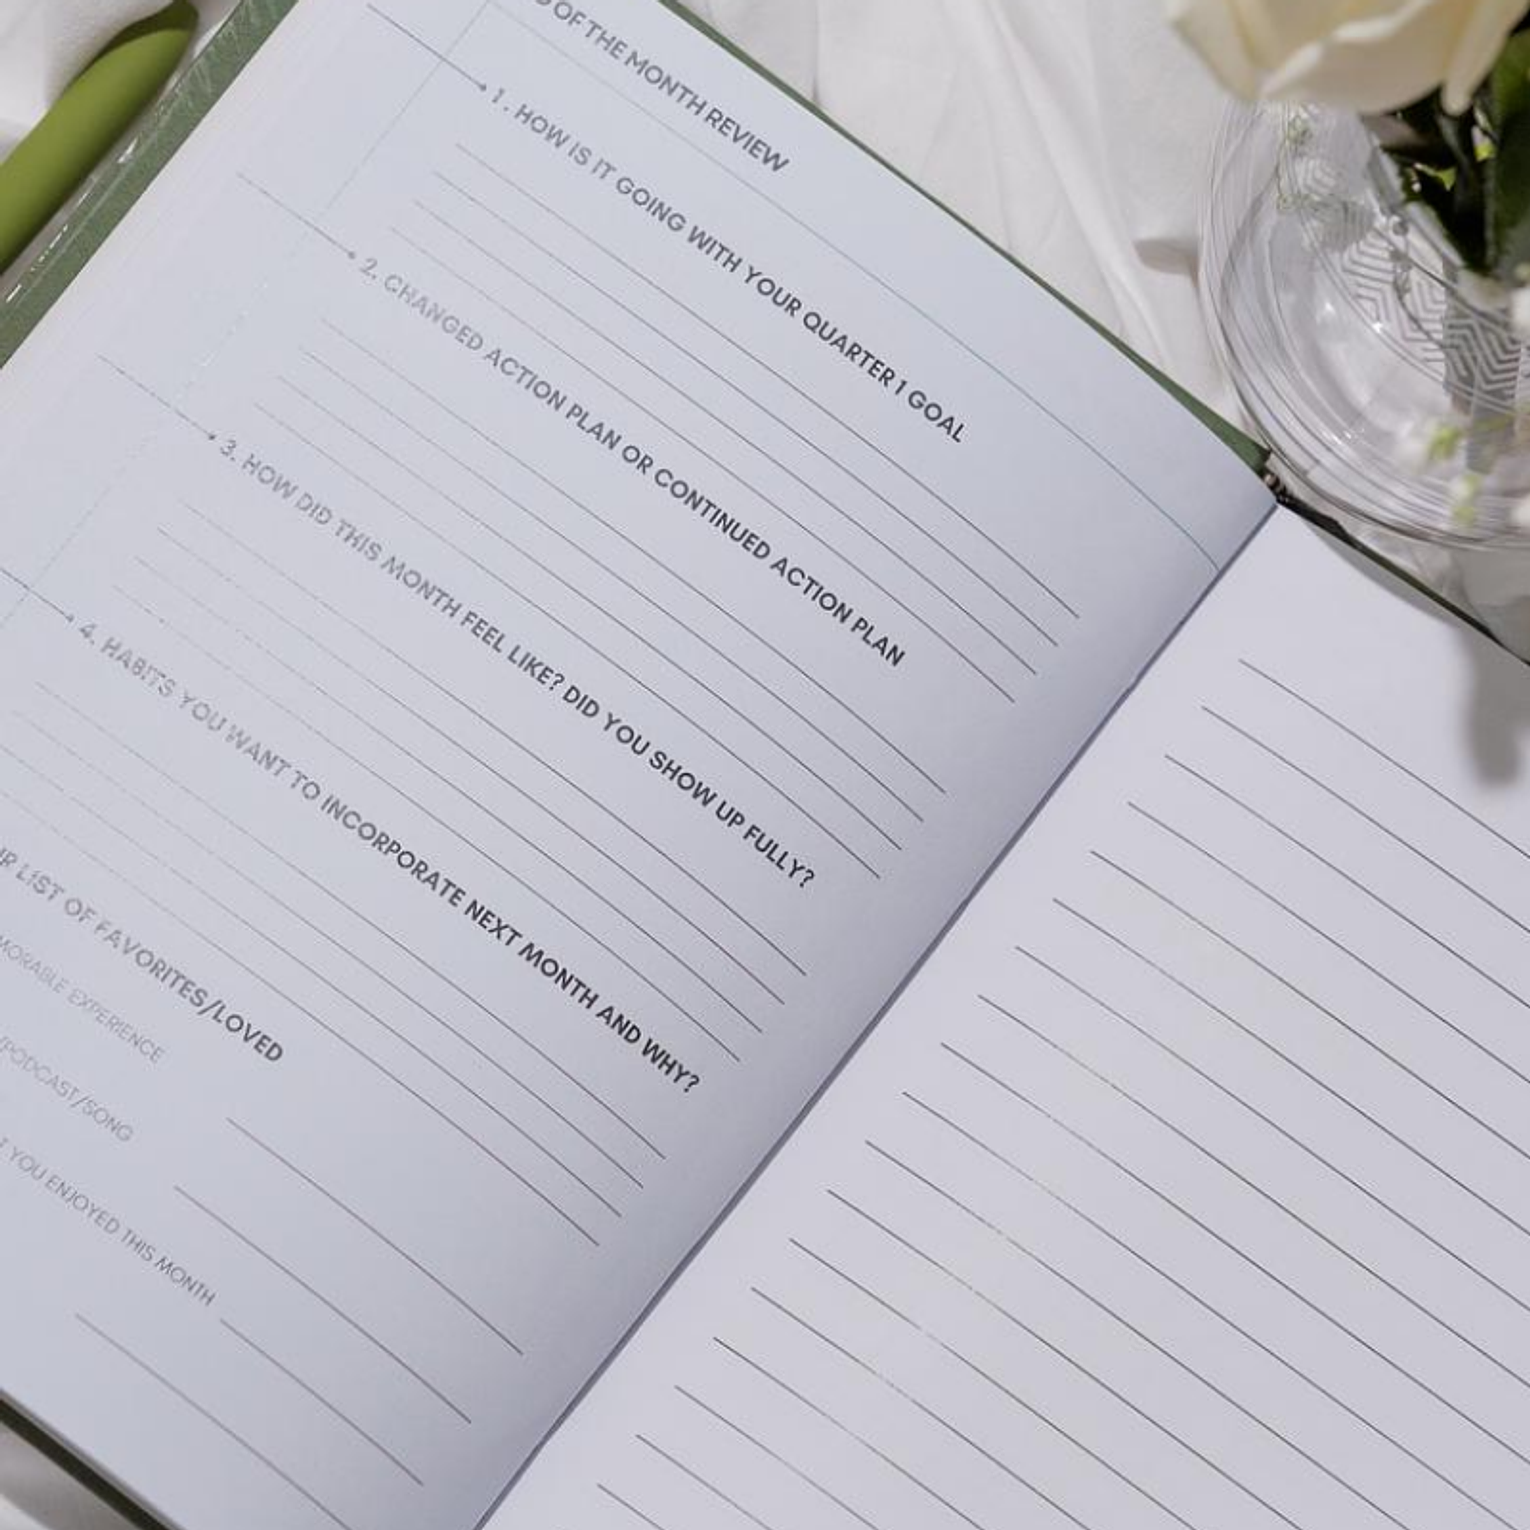 OF THE MONTH REVIEW
1. HOW IS IT GOING WITH YOUR QUARTER 1 GOAL
2. CHANGED ACTION PLAN OR CONTINUED ACTION PLAN
3. HOW DID THIS MONTH FEEL LIKE? DID YOU SHOW UP FULLY?
4. HABITS YOU WANT TO INCORPORATE NEXT MONTH AND WHY?
LIST OF FAVORITES/LOVED
EXPERIENCE
/PODCAST/SONG
YOU ENJOYED THIS MONTH